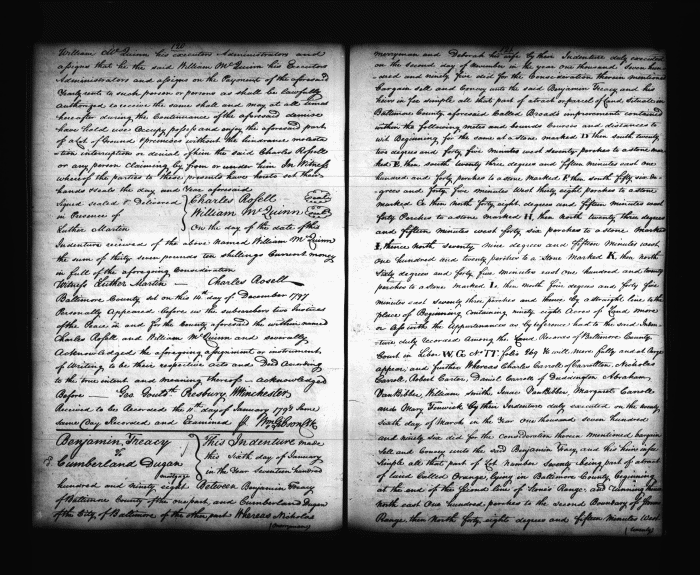 120
William McQuinn his executors Administrators and
assigns that he the said William McQuinn his Executors
Administrators and assigns on the Payment of the aforesaid
Yearly rent to such person or persons as shall be lawfully
authorized to receive the same shall and may at all times
hereafter during the Continuance of the aforesaid demise
have hold use occupy possess and enjoy the aforesaid part
of a Lot of Ground & premises without the hindrance molesta-
tion interruption or denial of him the said Charles Rosell
or any person claiming by from or under him In Witness
whereof the parties to these presents have hereto set their
hands seals the day and Year aforesaid
Signed sealed & Delivered
in Presence of
Luther Martin
Charles Rosell (seal)
William McQuinn (seal)
On the day of the date of this
Indenture received of the above named William McQuinn
the sum of thirty seven pounds ten shillings Current money
in full of the aforegoing Consideration
Witness Luther Martin — Charles Rosell
Baltimore County sct on this 14th day of December 1797
Personally Appeared before us the subscribers two Justices
of the Peace in and for the County aforesaid the within named
Charles Rosell and William McQuinn and severally
Acknowledged the aforegoing assignment or instrument
of Writing to be their respective acts and Deed according
to the true intent and meaning thereof — Acknowledged
Before — Geo. Gouldsh. Presbury WWinchester
Received to be Recorded the 11th day of January 1798 same
same Day Recorded and Examined Wm Gibson Clk
Benjamin Treacy
to
Cumberland Dugan
mortgage
This Indenture made
this Sixth day of January
in the Year Seventeen hundred
hundred and ninety eight Between Benjamin Treacy
of Baltimore County of the one part, and Cumberland Dugan
of the City of Baltimore of the other part Whereas Nicholas
(Merryman)
merryman and Deborah his wife by their Indenture duly executed
on the second day of November in the year one thousand Seven hun-
dred and ninety five did for the Consideration therein mentioned
bargain sell and Convey unto the said Benjamin Treacy and his
heirs in fee simple all that part of a tract or parcel of Land Situate in
Baltimore County aforesaid Called Broads improvements contained
within the following metes and bounds Courses and distances to
wit Beginning for the same at a stone marked D then south twenty
two degrees and forty five minutes west seventy perches to a stone mar-
ked E then south twenty three degrees and fifteen minutes east one
hundred and forty perches to a stone marked F then south fifty six de-
grees and forty five minutes West thirty eight perches to a stone
marked G then north forty eight degrees and fifteen minutes west
forty Perches to a stone marked H, then north twenty three degrees
and fifteen minutes west forty six perches to a stone marked
I, thence north seventy nine degrees and fifteen minutes east
one hundred and twenty perches to a stone marked K, then north
sixty degrees and forty five minutes east one hundred and twenty
perches to a stone marked L then north five degrees and forty five
minutes east seventy three perches and thence by a straight line to the
place of Beginning containing ninety eight Acres of Land more
or less with the appurtenances as by reference had to the said Inden-
ture duly recorded among the Land Records of Baltimore County
Court in Liber W.G. No TT folio 269 &c will more fully and at large
appear and further Whereas Charles Carroll of Carrollton, Nicholas
Carroll, Robert Carter, Daniel Carroll of Duddington Abraham
VanBibber William Smith Isaac VanBibber, Margarett Carroll
and Mary Fenwick by their Indenture duly executed on the twenty
sixty day of March in the Year one thousand seven hundred
and ninety six did for the consideration therein mentioned bargain
sell and Convey unto the said Benjamin Tracy, and his heirs in fee
simple all that part of Lot Number Seventy being part of a tract
of land Called Orange, lying in Baltimore County, beginning
at the end of the second line of Stone's Range, and running thence
north east One hundred perches to the second Boundary of Stones
Range, then North forty eight degrees and fifteen Minutes West
(twenty)